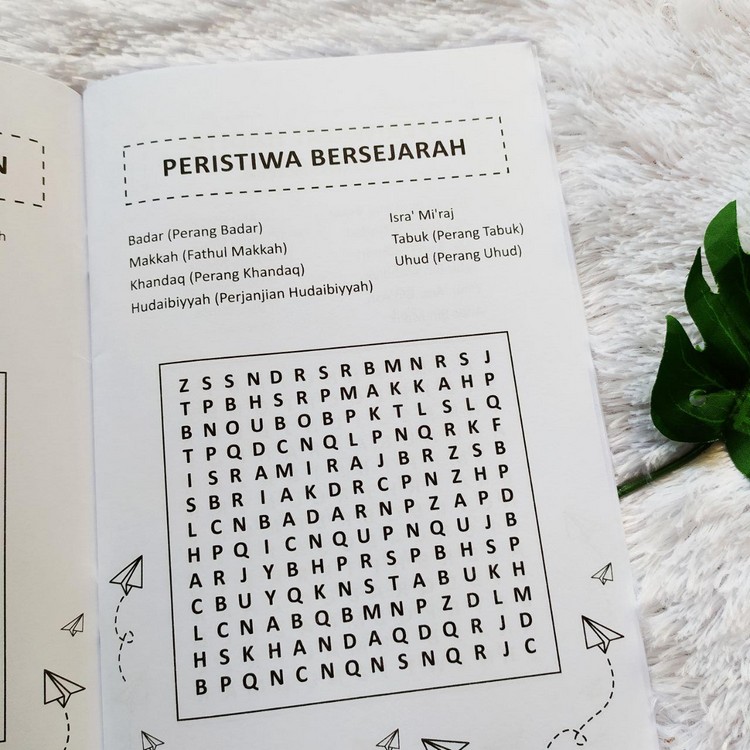 N
h
PERISTIWA BERSEJARAH
Badar (Perang Badar)
Makkah (Fathul Makkah)
Khandaq (Perang Khandaq)
Hudaibiyyah (Perjanjian Hudaibiyyah)
Isra' Mi'raj
Tabuk (Perang Tabuk)
Uhud (Perang Uhud)
Z S S N D R S R B M N R S J
T P B H S R P M A K K A H P
B N O U B O B P K T L S L Q
T P Q D C N Q L P N Q R K F
I S R A M I R A J B R Z S B
S B R I A K D R C P N Z H P
L C N B A D A R N P Z A P D
H P Q I C N Q U P N Q U J B
A R J Y B H P R S P B H S P
C B U Y Q K N S T A B U K H
L C N A B Q B M N P Z D L M
H S K H A N D A Q D Q R J D
B P Q N C N Q N S N Q R J C